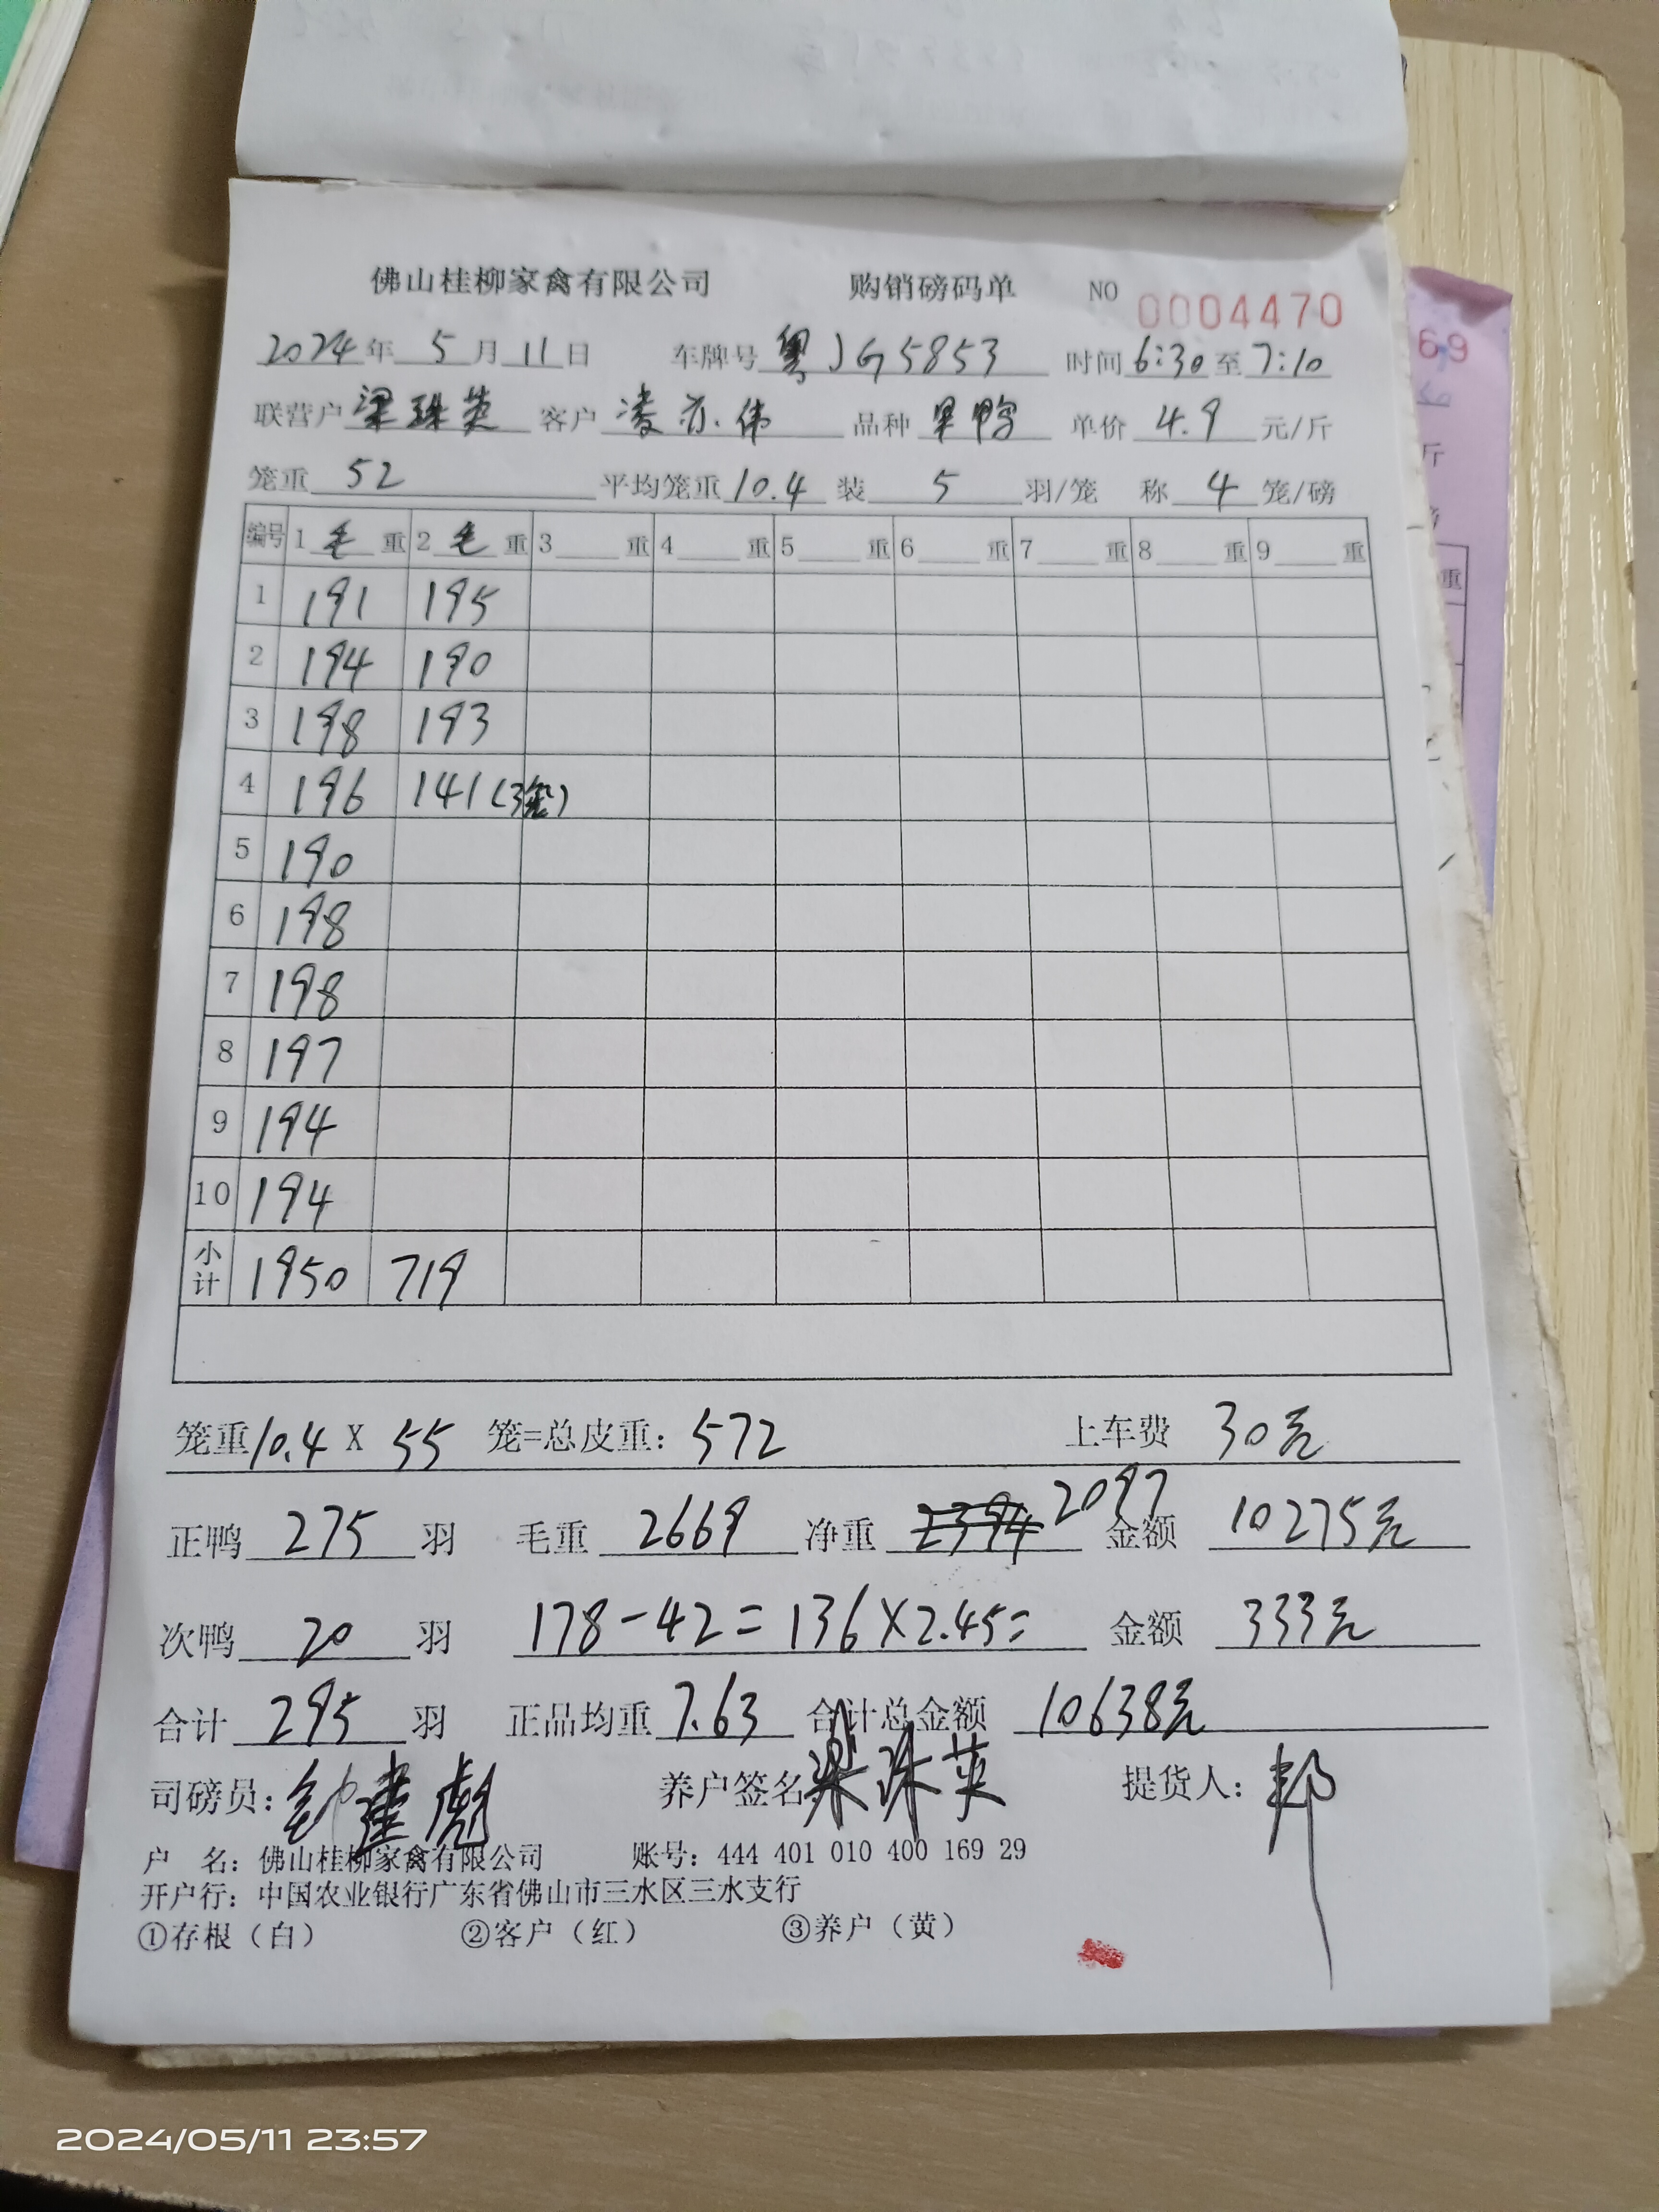 佛山桂柳家禽有限公司 购销磅码单 NO 0004470
69
2024年 5 月 11 日 车牌号 粤JG5853 时间 6:30 至 7:10
联营户 梁珠英 客户 凌亦伟 品种 果鸭 单价 4.9 元/斤
斤
笼重 52 平均笼重 10.4 装 5 羽/笼 称 4 笼/磅
编号 1 毛 重 2 毛 重 3 重 4 重 5 重 6 重 7 重 8 重 9 重
重
1 191 195
2 194 190
3 198 193
4 196 141(3笼)
5 190
6 198
7 198
8 197
9 194
10 194
小计 1950 719
笼重 10.4 X 55 笼=总皮重: 572 上车费 30元
正鸭 275 羽 毛重 2669 净重 2394 2097 金额 10275元
次鸭 20 羽 178-42=136×2.45= 金额 333元
合计 295 羽 正品均重 7.63 合计总金额 10638元
司磅员: 钟建彪 养户签名 梁珠英 提货人: 邦
户 名: 佛山桂柳家禽有限公司 账号: 444 401 010 400 169 29
开户行: 中国农业银行广东省佛山市三水区三水支行
①存根（白） ②客户（红） ③养户（黄）
2024/05/11 23:57